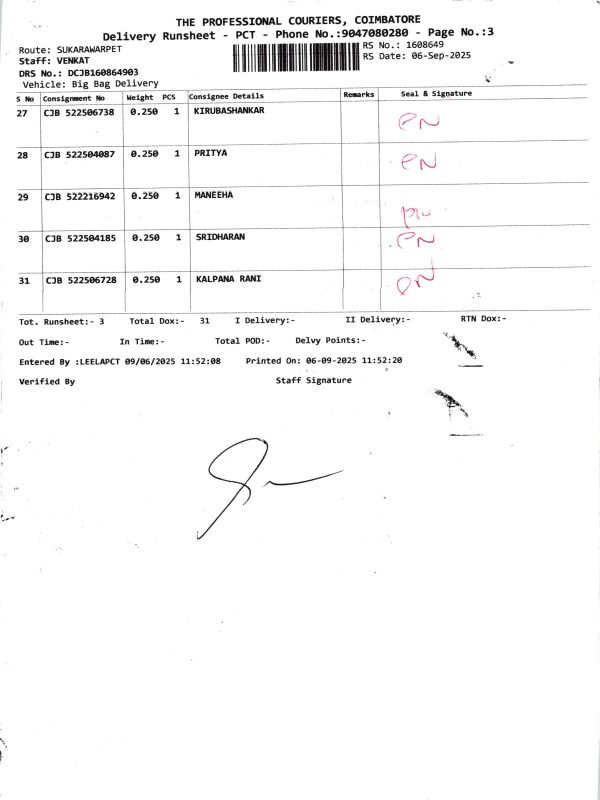 THE PROFESSIONAL COURIERS, COIMBATORE
Delivery Runsheet - PCT - Phone No.:9047080280 - Page No.:3
Route: SUKARAWARPET
RS No.: 1608649
Staff: VENKAT
RS Date: 06-Sep-2025
DRS No.: DCJB160864903
Vehicle: Big Bag Delivery
S No Consignment No Weight PCS Consignee Details Remarks Seal & Signature
27 CJB 522506738 0.250 1 KIRUBASHANKAR
28 CJB 522504087 0.250 1 PRITYA
29 CJB 522216942 0.250 1 MANEEHA
30 CJB 522504185 0.250 1 SRIDHARAN
31 CJB 522506728 0.250 1 KALPANA RANI
Tot. Runsheet:- 3 Total Dox:- 31 I Delivery:- II Delivery:- RTN Dox:-
Out Time:- In Time:- Total POD:- Delvy Points:-
Entered By :LEELAPCT 09/06/2025 11:52:08 Printed On: 06-09-2025 11:52:20
Verified By Staff Signature